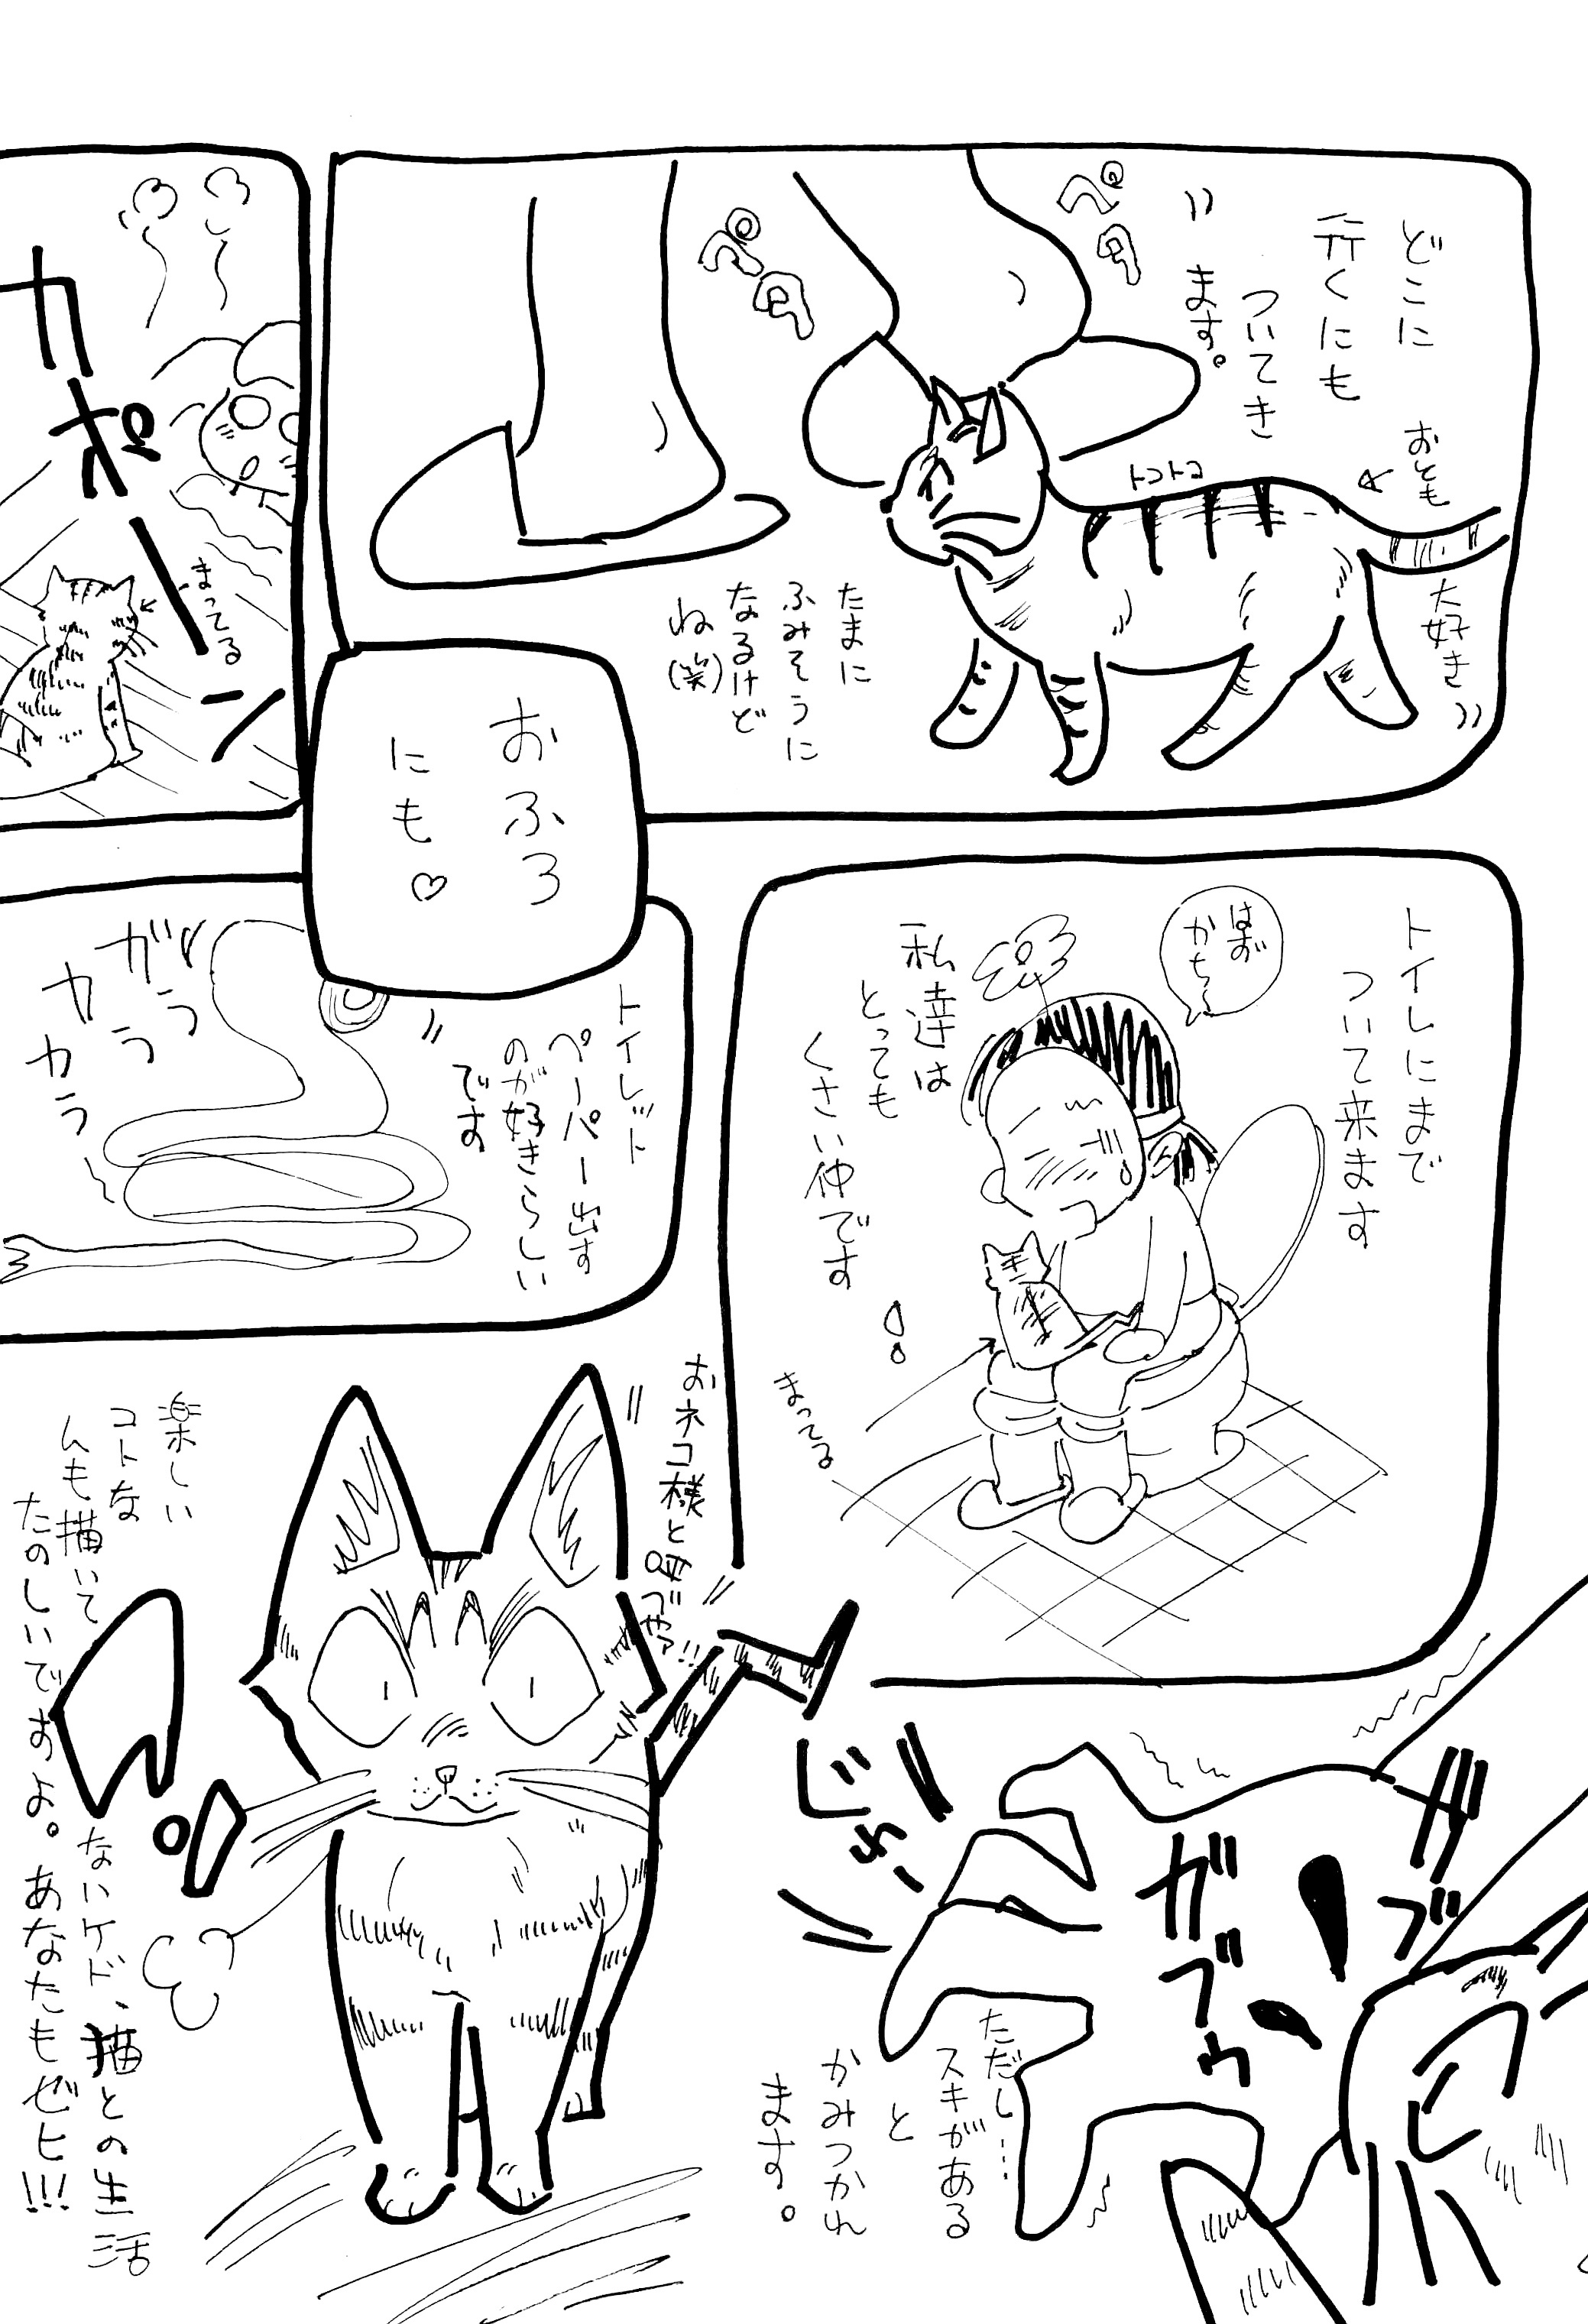 どこに
行くにも
ついてき
ます。
ペタ
ペタ
おとも
大好き
トコトコ
たまに
ふみそうに
なるけど
ね(笑)
おふろ
にも♡
カポーン
まってる
トイレにまで
ついて来ます
はお
かち〜
私達は
とっても
くさい仲です
まってる
トイレット
ペーパー出す
のが好きらしい
です
ガラ
カラ
カラ
ガブ
ガブゥ
じわ
ただし…
スキがある
と
かみつかれ
ます。
おネコ様と
楽しい
コトな
んも描いて
ないケド、描との生活
たのしいですよ。あなたもぜヒ!!!